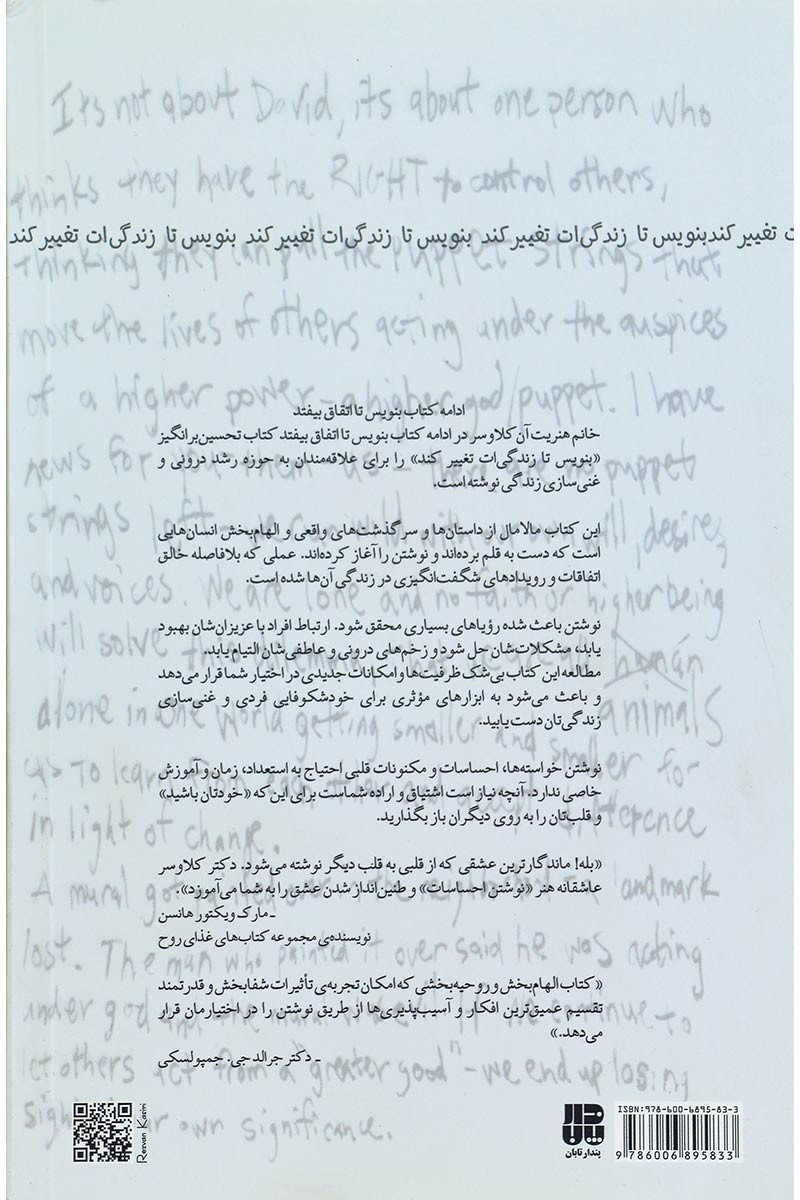 Its not about David, its about one person who
thinks they have the RIGHT to control others,
ت تغییر کند بنویس تا زندگی‌ات تغییر کند بنویس تا زندگی‌ات تغییر کند بنویس تا زندگی‌ات تغییر کند
thinking they can pull the puppet strings that
move the lives of others acting under the auspices
of a higher power - a higher god/puppet. I have
ادامه کتاب بنویس تا اتفاق بیفتد
خانم هنریت آن کلاوسر در ادامه کتاب بنویس تا اتفاق بیفتد کتاب تحسین‌برانگیز
«بنویس تا زندگی‌ات تغییر کند» را برای علاقه‌مندان به حوزه رشد درونی و
غنی‌سازی زندگی نوشته است.
news for you puppet
strings left will, desires
این کتاب مالامال از داستان‌ها و سرگذشت‌های واقعی و الهام‌بخش انسان‌هایی
است که دست به قلم برده‌اند و نوشتن را آغاز کرده‌اند. عملی که بلافاصله خالق
اتفاقات و رویدادهای شگفت‌انگیزی در زندگی آن‌ها شده است.
and voices. We are lone and no faith or higher being
will solve human
نوشتن باعث شده رؤیاهای بسیاری محقق شود. ارتباط افراد با عزیزان‌شان بهبود
یابد، مشکلات‌شان حل شود و زخم‌های درونی و عاطفی‌شان التیام یابد.
مطالعه این کتاب بی‌شک ظرفیت‌ها و امکانات جدیدی در اختیار شما قرار می‌دهد
و باعث می‌شود به ابزارهای مؤثری برای خودشکوفایی فردی و غنی‌سازی
زندگی‌تان دست یابید.
animals
alone in one world getting smaller and smaller for
us to learn
نوشتن خواسته‌ها، احساسات و مکنونات قلبی احتیاج به استعداد، زمان و آموزش
خاصی ندارد. آنچه نیاز است اشتیاق و اراده شماست برای این که «خودتان باشید»
و قلب‌تان را به روی دیگران باز بگذارید.
in light of change.
«بله! ماندگارترین عشقی که از قلبی به قلب دیگر نوشته می‌شود. دکتر کلاوسر
عاشقانه هنر «نوشتن احساسات» و طنین‌انداز شدن عشق را به شما می‌آموزد».
ـ مارک ویکتور هانسن
نویسنده‌ی مجموعه کتاب‌های غذای روح
A mural landmark
lost. The man who painted it over said he was acting
«کتاب الهام‌بخش و روحیه‌بخشی که امکان تجربه‌ی تأثیرات شفابخش و قدرتمند
تقسیم عمیق‌ترین افکار و آسیب‌پذیری‌ها از طریق نوشتن را در اختیارمان قرار
می‌دهد.»
ـ دکتر جرالد جی. جمپولسکی
under god to
let others act from a "greater good" - we end up losing
own significance.
Rezvan Karimi
پندار تابان
ISBN:978-600-6895-83-3
9 786006 895833